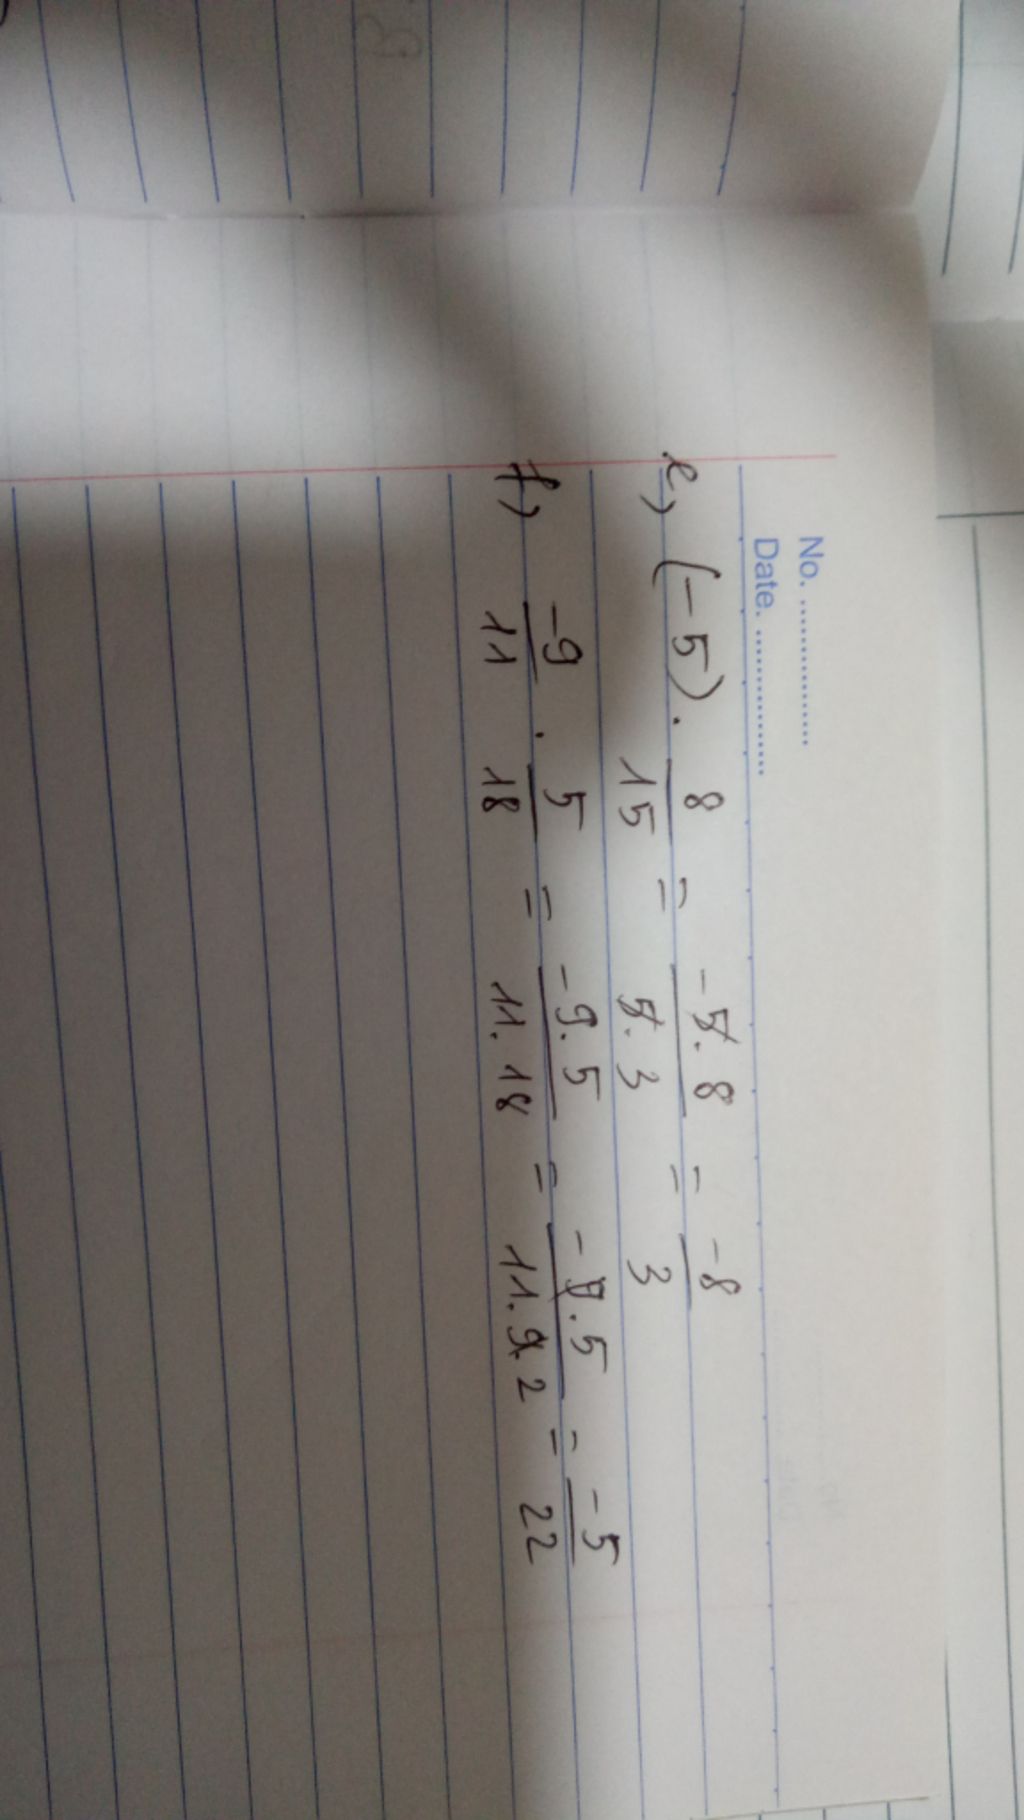 No. ..................
Date. ..................
e, (-5) . 8/15 = -5.8/5.3 = -8/3
f, -9/11 . 5/18 = -9.5/11.18 = -9.5/11.9.2 = -5/22